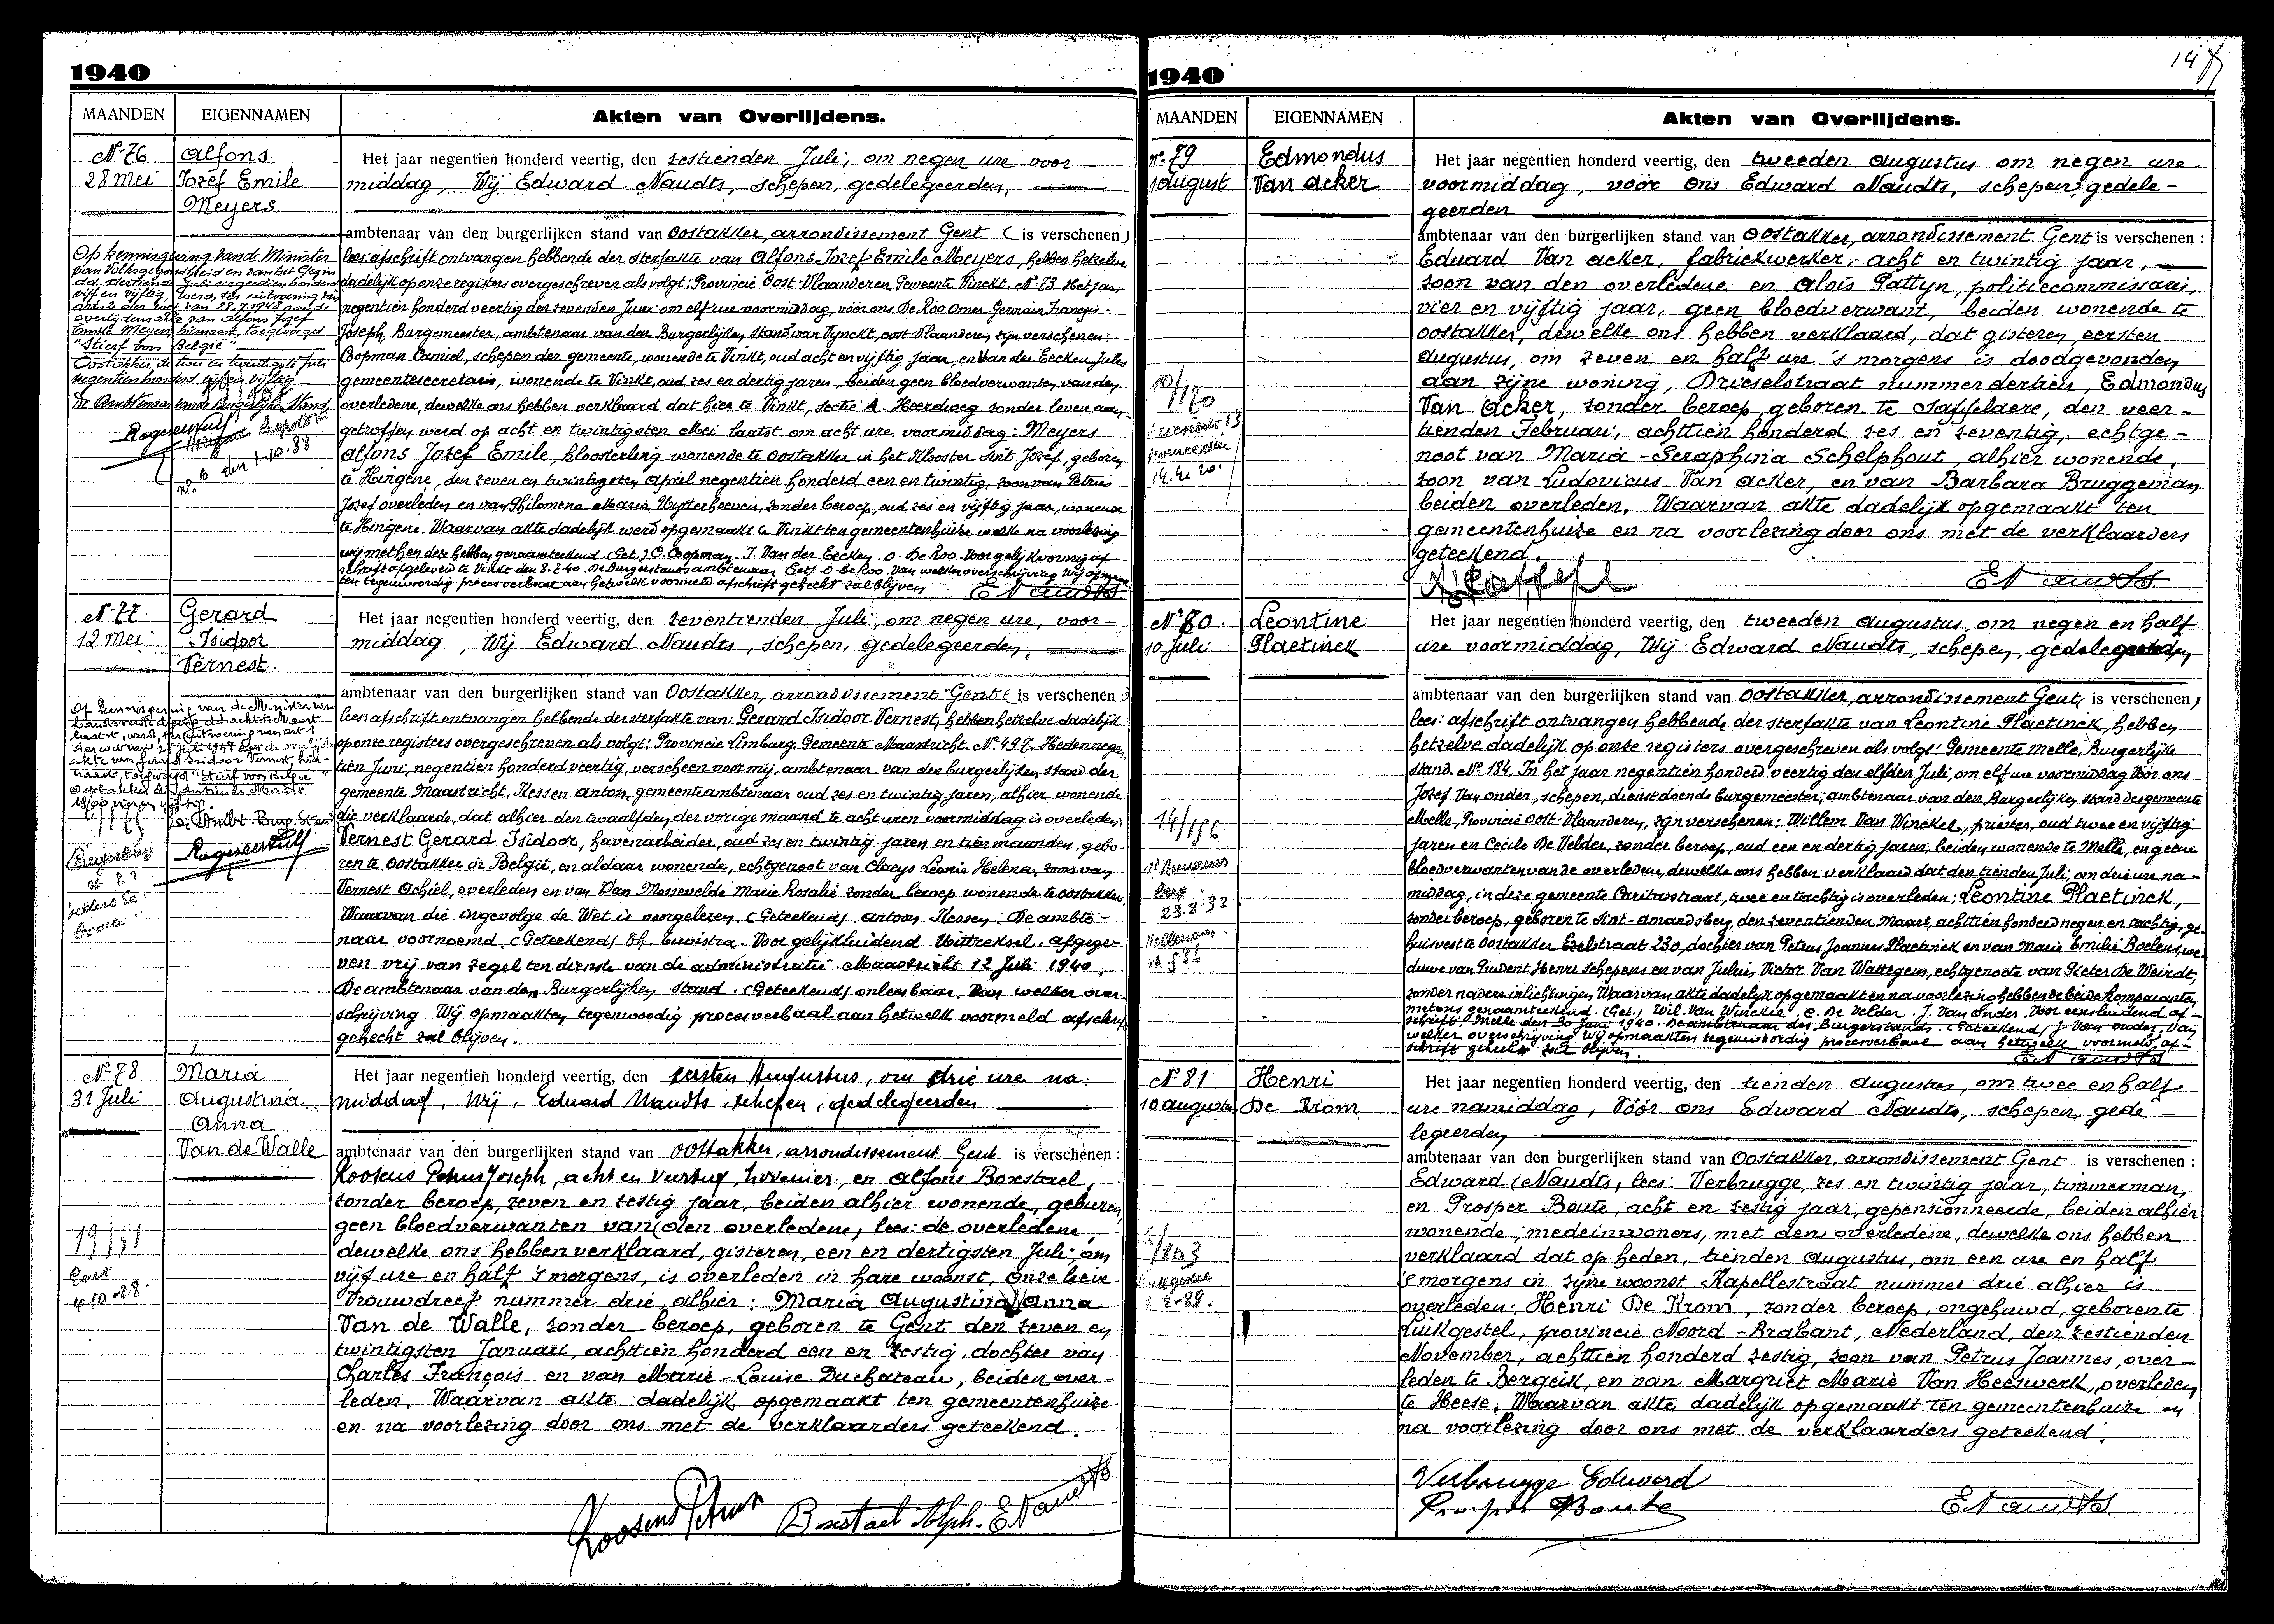 1940
MAANDEN EIGENNAMEN Akten van Overlijdens.
N° 76
28 Mei
Alfons
Jozef Emile
Meyers.
Het jaar negentien honderd veertig, den zestienden Juli, om negen ure voor-
middag, Wij Edward Naudts, schepen, gedelegeerden,
ambtenaar van den burgerlijken stand van Oostakker, arrondissement Gent (is verschenen)
lees: afschrift ontvangen hebbende der sterfakte van Alfons Jozef Emile Meyers, hebben hetzelve
dadelijk op onze registers overgeschreven als volgt: Provincie Oost-Vlaanderen Gemeente Vinckt. N° 73. Het jaar
negentien honderd veertig den zevenden Juni om elf ure voormiddag, vóór ons De Roo Omer Germain François-
Joseph, Burgemeester, ambtenaar van den Burgerlijken stand van Vynckt, Oost Vlaanderen, zijn verschenen:
Copman Camiel, schepen der gemeente, wonende te Vinkt, oud acht en vijftig jaar, en Van der Eecken Jules
gemeentesecretaris, wonende te Vinkt, oud zes en dertig jaren, beiden geen bloedverwanten van den
overledene, dewelke ons hebben verklaard dat hier te Vinkt, sectie A. Heerdweg zonder leven aan-
getroffen werd op acht en twintigsten Mei laatst om acht ure voormiddag: Meyers
Alfons Jozef Emile, kloosterling wonende te Oostakker in het Klooster Sint Jozef, geboren
te Hingene, den zeven en twintigsten April negentien honderd een en twintig, zoon van Petrus
Jozef overleden en van Philomena Maria Uytterhoeven, zonder beroep, oud zes en vijftig jaar, wonende
te Hingene. Waarvan akte dadelijk werd opgemaakt te Vinkt ten gemeentenhuize welke na voorlezing
wij met hen deze hebben genaamteekend. (Get.) C. Coopman. J. Van der Eecken O. De Roo. Voor gelijkvormig af-
schrift afgeleverd te Vinkt den 8.7.40. De Burgerstandsambtenaar Get) O De Roo. Van welker overschrijving Wij opmaken
ten tegenwoordig procesverbaal aan hetwelk voormeld afschrift gehecht zal blijven. E Naudts
Op kennisgeving van de Minister
van Volksgezondheid en van het Gezin
"Stierf voor België"
De Ambtenaar van de Burgerlijke Stand
1-10-38
N° 77.
12 Mei
Gerard
Isidoor
Vernest.
Het jaar negentien honderd veertig, den zeventienden Juli, om negen ure, voor-
middag, Wij Edward Naudts, schepen, gedelegeerden,
ambtenaar van den burgerlijken stand van Oostakker, arrondissement Gent (is verschenen:)
lees: afschrift ontvangen hebbende der sterfakte van: Gerard Isidoor Vernest, hebben hetzelve dadelijk
op onze registers overgeschreven als volgt: Provincie Limburg, Gemeente Maastricht. N° 497. Heden negen-
tien Juni, negentien honderd veertig, verscheen voor mij, ambtenaar van den burgerlijken stand der
gemeente Maastricht, Klessen Anton, gemeenteambtenaar oud zes en twintig jaren, alhier wonende
die verklaarde, dat alhier den twaalfden der vorige maand te acht uren voormiddag is overleden:
Vernest Gerard Isidoor, havenarbeider, oud zes en twintig jaren en tien maanden, gebo-
ren te Oostakker in België, en aldaar wonende, echtgenoot van Claeys Leonie Helena, zoon van
Vernest Achiel, overleden en van Van Mossevelde Marie Rosalie zonder beroep wonende te Oostakker.
Waarvan die ingevolge de Wet is voorgelezen. (Geteekend) Antoon Klessen. De ambte-
naar voornoemd. (Geteekend) Th. Tuvistra. Voor gelijkluidend Uittreksel. afgege-
ven vrij van zegel ten dienste van de administratie. Maastricht 12 Juli 1940.
De ambtenaar van den Burgerlijken stand. (Geteekend) onleesbaar. Van welker over-
schrijving Wij opmaakten tegenwoordig procesverbaal aan hetwelk voormeld afschrift
gehecht zal blijven.
"Stierf voor België"
N° 78
31 Juli
Maria
Augustina
Anna
Van de Walle
Het jaar negentien honderd veertig, den eersten Augustus, om drie ure na-
middag, Wij, Eduard Naudts, schepen, gedelegeerden
ambtenaar van den burgerlijken stand van Oostakker, arrondissement Gent is verschenen:
Roosens Petrus Joseph, acht en veertig, hovenier, en Alfons Boxstael,
zonder beroep, zeven en zestig jaar, beiden alhier wonende, geburen,
geen bloedverwanten van (den overledene, lees: de overledene,
dewelke ons hebben verklaard, gisteren, een en dertigsten Juli om
vijf ure en half 's morgens, is overleden in hare woonst, Onze lieve
Vrouwdreef nummer drie, alhier: Maria Augustina Anna
Van de Walle, zonder beroep, geboren te Gent den zeven en
twintigsten Januari, achttien honderd een en zestig, dochter van
Charles François en van Marie-Louise Duchateau, beiden over-
leden. Waarvan akte dadelijk opgemaakt ten gemeentenhuize
en na voorlezing door ons met de verklaarders geteekend.
Roosens Petrus Boxstael Alph. E Naudts
1940
MAANDEN EIGENNAMEN Akten van Overlijdens.
N° 79
1 August
Edmondus
Van Acker
Het jaar negentien honderd veertig, den tweeden Augustus om negen ure
voormiddag, vóór ons Edward Naudts, schepen, gedele-
geerden
ambtenaar van den burgerlijken stand van Oostakker, arrondissement Gent is verschenen:
Eduard Van Acker, fabriekwerker, acht en twintig jaar,
zoon van den overledene en Alois Pattyn, politiecommissaris,
vier en vijftig jaar, geen bloedverwant, beiden wonende te
Oostakker, dewelke ons hebben verklaard, dat gisteren, eersten
Augustus, om zeven en half ure 's morgens is doodgevonden
aan zijne woning, Drieselstraat nummer dertien, Edmondus
Van Acker, zonder beroep, geboren te Saffelaere, den veer-
tienden Februari, achttien honderd zes en zeventig, echtge-
noot van Maria-Seraphina Schelphout, alhier wonende,
zoon van Ludovicus Van Acker, en van Barbara Bruggeman
beiden overleden. Waarvan akte dadelijk opgemaakt ten
gemeentenhuize en na voorlezing door ons met de verklaarders
geteekend.
E Naudts
N° 80.
10 Juli
Leontine
Plaetinck
Het jaar negentien honderd veertig, den tweeden Augustus, om negen en half
ure voormiddag, Wij Edward Naudts, schepen, gedelegeerden
ambtenaar van den burgerlijken stand van Oostakker, arrondissement Gent, is verschenen)
lees: afschrift ontvangen hebbende der sterfakte van Leontine Plaetinck, hebben
hetzelve dadelijk op onze registers overgeschreven als volgt: Gemeente Melle, Burgerlijke
stand. N° 184. In het jaar negentien honderd veertig den elfden Juli, om elf ure voormiddag Vóór ons
Jozef Van Onder, schepen, dienstdoende burgemeester, ambtenaar van den Burgerlijken stand der gemeente
Melle, Provincie Oost-Vlaanderen, zijn verschenen: Willem Van Winckel, priester, oud twee en vijftig
jaren en Cecile De Velder, zonder beroep, oud een en dertig jaren, beiden wonende te Melle, en geene
bloedverwanten van de overledene, dewelke ons hebben verklaard dat den tienden Juli, om drie ure na-
middag, in deze gemeente Caritasstraat, twee en tachtig is overleden: Leontine Plaetinck,
zonder beroep, geboren te Sint-Amandsberg, den zeventienden Maart, achttien honderd negen en tachtig, ge-
huisvest te Oostakker Ezelstraat 230, dochter van Petrus Joannes Plaetinck en van Marie Emilie Boelens, we-
duwe van Prudent Henri Schepens en van Julius Victor Van Wattegem, echtgenote van Pieter De Weirdt,
zonder nadere inlichtingen. Waarvan akte dadelijk opgemaakt en na voorlezing hebben de beide komparanten,
met ons genaamteekend. (Get.) Wil. Van Winckel. C. De Velder. J. Van Onder. Voor eensluidend af-
schrift. Melle den 30 Juni 1940. De ambtenaar des Burgerstands. (Geteekend) J. Van Onder. Van
welker overschrijving Wij opmaakten tegenwoordig procesverbaal aan hetwelk voormeld af-
schrift gehecht zal blijven.
E Naudts
14/196
23.8.32
N° 81
10 Augustus
Henri
De Krom
Het jaar negentien honderd veertig, den tienden Augustus, om twee en half
ure namiddag, Vóór ons Edward Naudts, schepen, gede-
legeerden
ambtenaar van den burgerlijken stand van Oostakker, arrondissement Gent is verschenen:
Edward (Naudts, lees: Verbrugge, zes en twintig jaar, timmerman,
en Prosper Boute, acht en zestig jaar, gepensionneerde, beiden alhier
wonende, medeinwoners, met den overledene, dewelke ons hebben
verklaard dat op heden, tienden Augustus, om een ure en half
'smorgens in zijne woonst Kapellestraat nummer drie alhier is
overleden: Henri De Krom, zonder beroep, ongehuwd, geboren te
Luikgestel, provincie Noord-Brabant, Nederland, den zestienden
November, achttien honderd zestig, zoon van Petrus Joannes, over-
leden te Bergeik, en van Margriet Marie Van Heeswerk, overleden
te Heese. Waarvan akte dadelijk opgemaakt ten gemeentenhuize en
na voorlezing door ons met de verklaarders geteekend.
Verbrugge Edward
Prosper Boute E Naudts